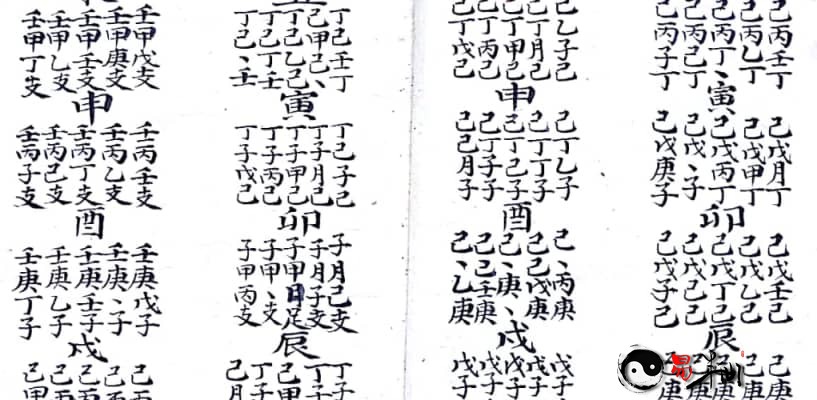 己丙壬丁
己丙乙丁
己丙丁丶
己丙己丁
己丙子丁
寅
己戊月丁
己戊甲丁
己戊丙丁
己戊丶子
己戊庚子
卯
己戊壬己
己戊乙己
己戊丁己
己戊己己
己戊子己
辰
己乙子己
己丁月己
己丁甲己
己丁丙己
己丁戊己
申
己丁乙子
己丁丁子
己丁己子
己丁子子
己己月子
酉
己丶丙庚
己己戊庚
己丶庚丶
己己壬庚
己丶乙庚
戌
戊子
戊子
戊子
戊子
戊子
丁己壬丁
己甲己丶
丁己乙己
丁己丁壬
丁己丶壬
寅
丁己子己
丁子月己
丁子甲己
丁子丙己
丁子戊己
卯
子月己支
子月子支
子甲日足
子甲丶支
子甲丙支
辰
丁子
丁子
己甲
丁子
己月
壬甲戊支
壬甲庚支
壬甲壬支
壬甲乙支
壬甲丁支
申
壬丙壬支
壬丙乙支
壬丙丁支
壬丙己支
壬丙子支
酉
壬庚戊子
壬庚丶子
壬庚壬子
壬庚乙子
壬庚丁子
戌
己丙
己丙
己丙
己丙
己甲